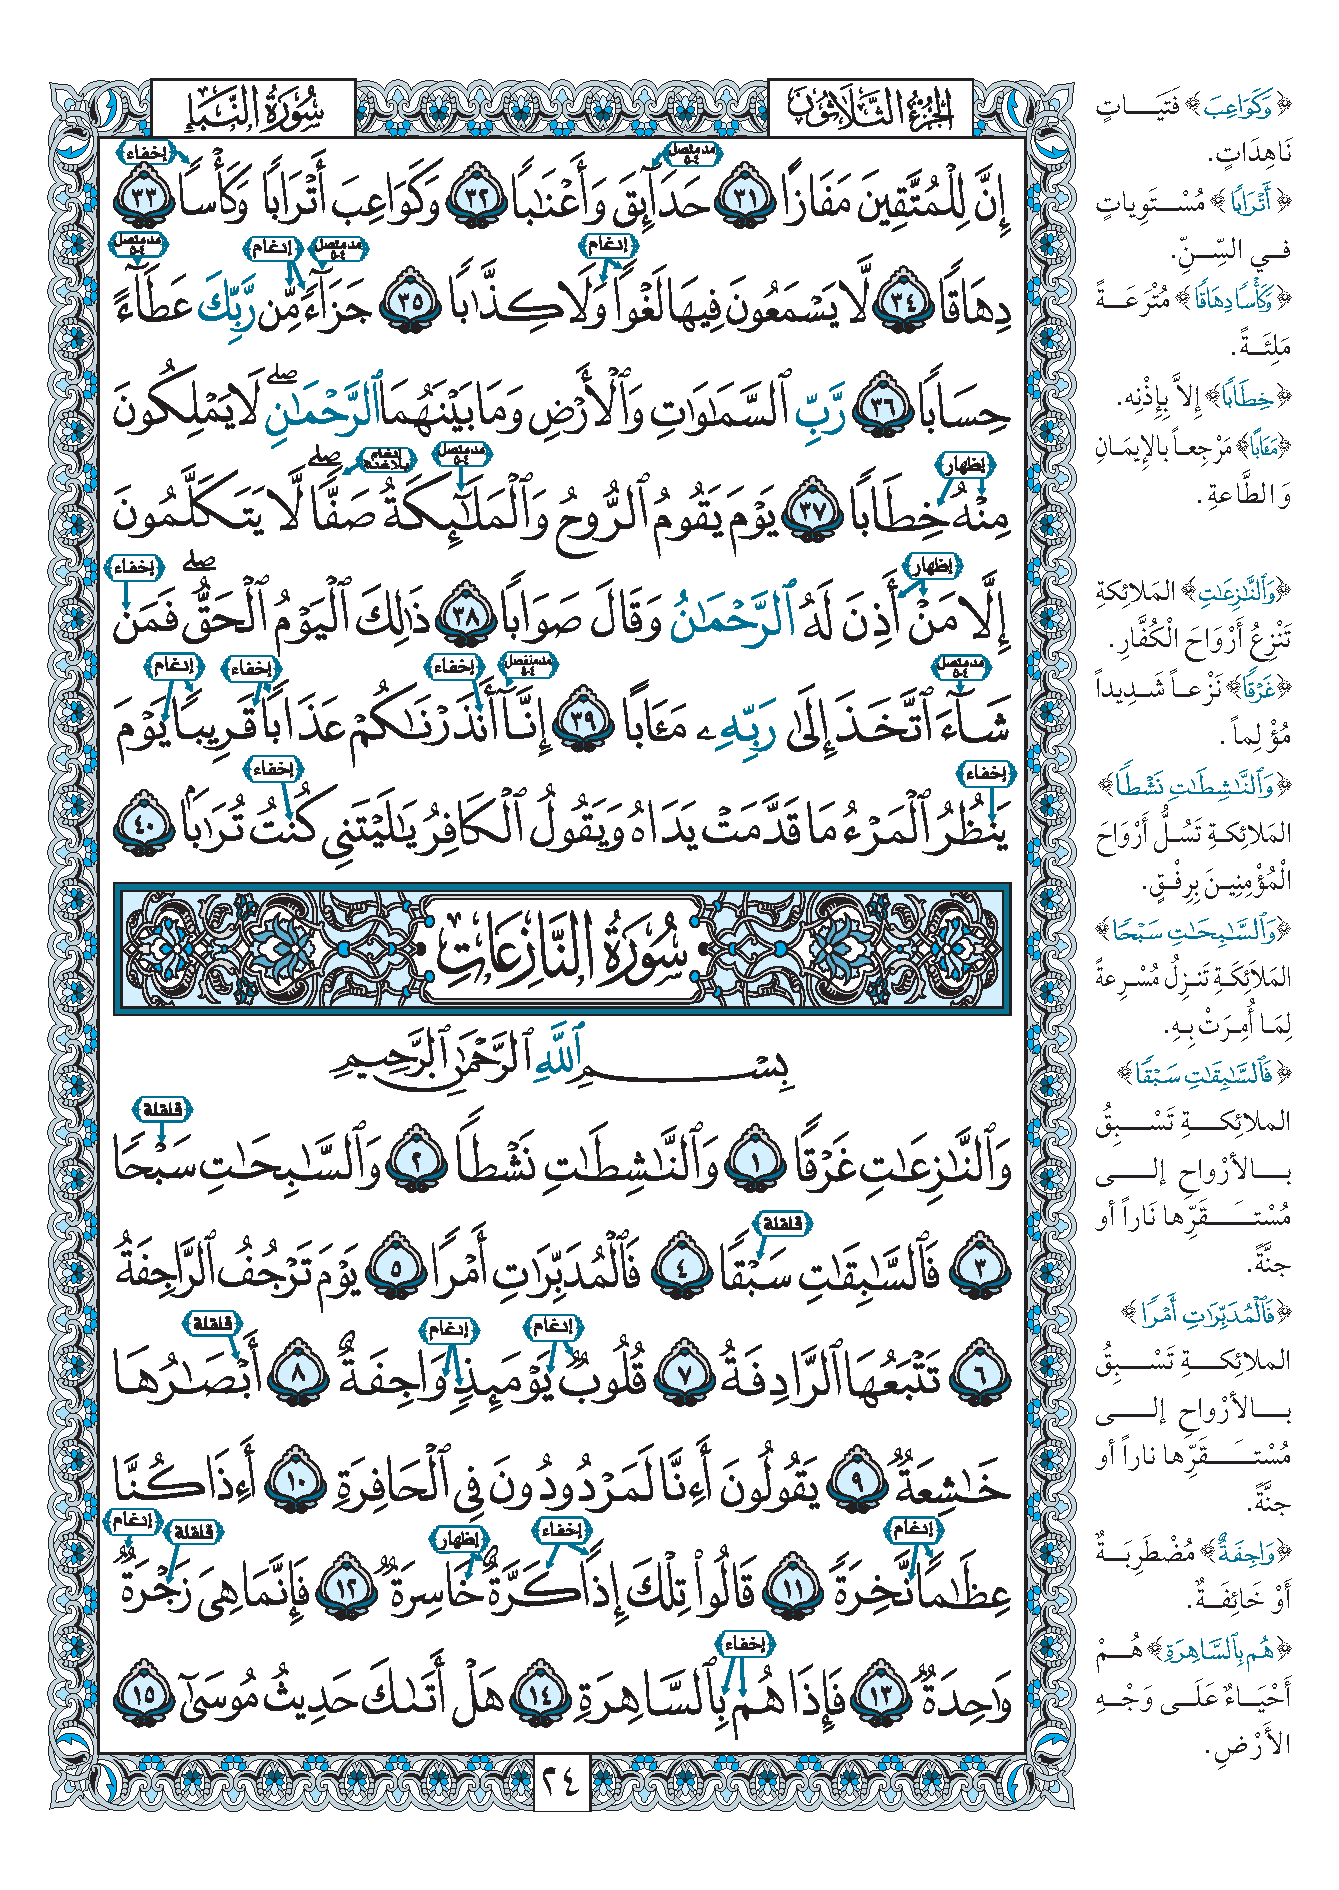 سُورَةُ النَّبَإِ
الجُزْءُ الثَّلَاثُونَ
إِنَّ لِلْمُتَّقِينَ مَفَازًا ٣١ حَدَآئِقَ وَأَعْنَٰبًا ٣٢ وَكَوَاعِبَ أَتْرَابًا ٣٣ وَكَأْسًا
دِهَاقًا ٣٤ لَّا يَسْمَعُونَ فِيهَا لَغْوًا وَلَا كِذَّٰبًا ٣٥ جَزَآءً مِّن رَّبِّكَ عَطَآءً
حِسَابًا ٣٦ رَّبِّ ٱلسَّمَٰوَٰتِ وَٱلْأَرْضِ وَمَا بَيْنَهُمَا ٱلرَّحْمَٰنِ ۖ لَا يَمْلِكُونَ
مِنْهُ خِطَابًا ٣٧ يَوْمَ يَقُومُ ٱلرُّوحُ وَٱلْمَلَٰٓئِكَةُ صَفًّا ۖ لَّا يَتَكَلَّمُونَ
إِلَّا مَنْ أَذِنَ لَهُ ٱلرَّحْمَٰنُ وَقَالَ صَوَابًا ٣٨ ذَٰلِكَ ٱلْيَوْمُ ٱلْحَقُّ ۖ فَمَن
شَآءَ ٱتَّخَذَ إِلَىٰ رَبِّهِۦ مَـَٔابًا ٣٩ إِنَّآ أَنذَرْنَٰكُمْ عَذَابًا قَرِيبًا يَوْمَ
يَنظُرُ ٱلْمَرْءُ مَا قَدَّمَتْ يَدَاهُ وَيَقُولُ ٱلْكَافِرُ يَٰلَيْتَنِى كُنتُ تُرَٰبًۢا ٤٠
سُورَةُ النَّازِعَاتِ
بِسْمِ ٱللَّهِ ٱلرَّحْمَٰنِ ٱلرَّحِيمِ
وَٱلنَّٰزِعَٰتِ غَرْقًا ١ وَٱلنَّٰشِطَٰتِ نَشْطًا ٢ وَٱلسَّٰبِحَٰتِ سَبْحًا
٣ فَٱلسَّٰبِقَٰتِ سَبْقًا ٤ فَٱلْمُدَبِّرَٰتِ أَمْرًا ٥ يَوْمَ تَرْجُفُ ٱلرَّاجِفَةُ
٦ تَتْبَعُهَا ٱلرَّادِفَةُ ٧ قُلُوبٌ يَوْمَئِذٍ وَاجِفَةٌ ٨ أَبْصَٰرُهَا
خَٰشِعَةٌ ٩ يَقُولُونَ أَءِنَّا لَمَرْدُودُونَ فِى ٱلْحَافِرَةِ ١٠ أَءِذَا كُنَّا
عِظَٰمًا نَّخِرَةً ١١ قَالُوا۟ تِلْكَ إِذًا كَرَّةٌ خَاسِرَةٌ ١٢ فَإِنَّمَا هِىَ زَجْرَةٌ
وَٰحِدَةٌ ١٣ فَإِذَا هُم بِٱلسَّاهِرَةِ ١٤ هَلْ أَتَىٰكَ حَدِيثُ مُوسَىٰٓ ١٥
٢٤
﴿وَكَوَاعِبَ﴾ فَتَيَاتٍ
نَاهِدَاتٍ.
﴿أَتْرَابًا﴾ مُسْتَوِياتٍ
في السِّنِّ.
﴿وَكَأْسًا دِهَاقًا﴾ مُتْرَعَةً
مَلِئَةً.
﴿خِطَابًا﴾ إلاَّ بِإِذْنِه.
﴿مَـَٔابًا﴾ مَرْجِعاً بالإيمَانِ
وَ الطَّاعةِ.
﴿وَٱلنَّٰزِعَٰتِ﴾ المَلائِكةِ
تَنْزِعُ أَرْوَاحَ الْكُفَّارِ.
﴿غَرْقًا﴾ نَزْعاً شَدِيداً
مُؤْلِماً.
﴿وَٱلنَّٰشِطَٰتِ نَشْطًا﴾
المَلائِكةِ تَسُلُّ أَرْوَاحَ
الْمُؤْمِنِينَ بِرِفْقٍ.
﴿وَٱلسَّٰبِحَٰتِ سَبْحًا﴾
المَلاَئِكَةِ تَنزِلُ مُسْرِعةً
لِمَا أُمِرَتْ بِهِ.
﴿فَٱلسَّٰبِقَٰتِ سَبْقًا﴾
الملائِكةِ تَسْبِقُ
بالأرْواحِ إلى
مُسْتَقَرِّها نَاراً أو
جنَّةً.
﴿فَٱلْمُدَبِّرَٰتِ أَمْرًا﴾
الملائِكةِ تَسْبِقُ
بالأرْواحِ إلى
مُسْتَقَرِّها ناراً أو
جنَّةً.
﴿وَاجِفَةٌ﴾ مُضْطَرِبَةٌ
أَوْ خَائِفَةٌ.
﴿هُم بِٱلسَّاهِرَةِ﴾ هُمْ
أَحْيَاءٌ عَلَى وَجْهِ
الأَرْضِ.